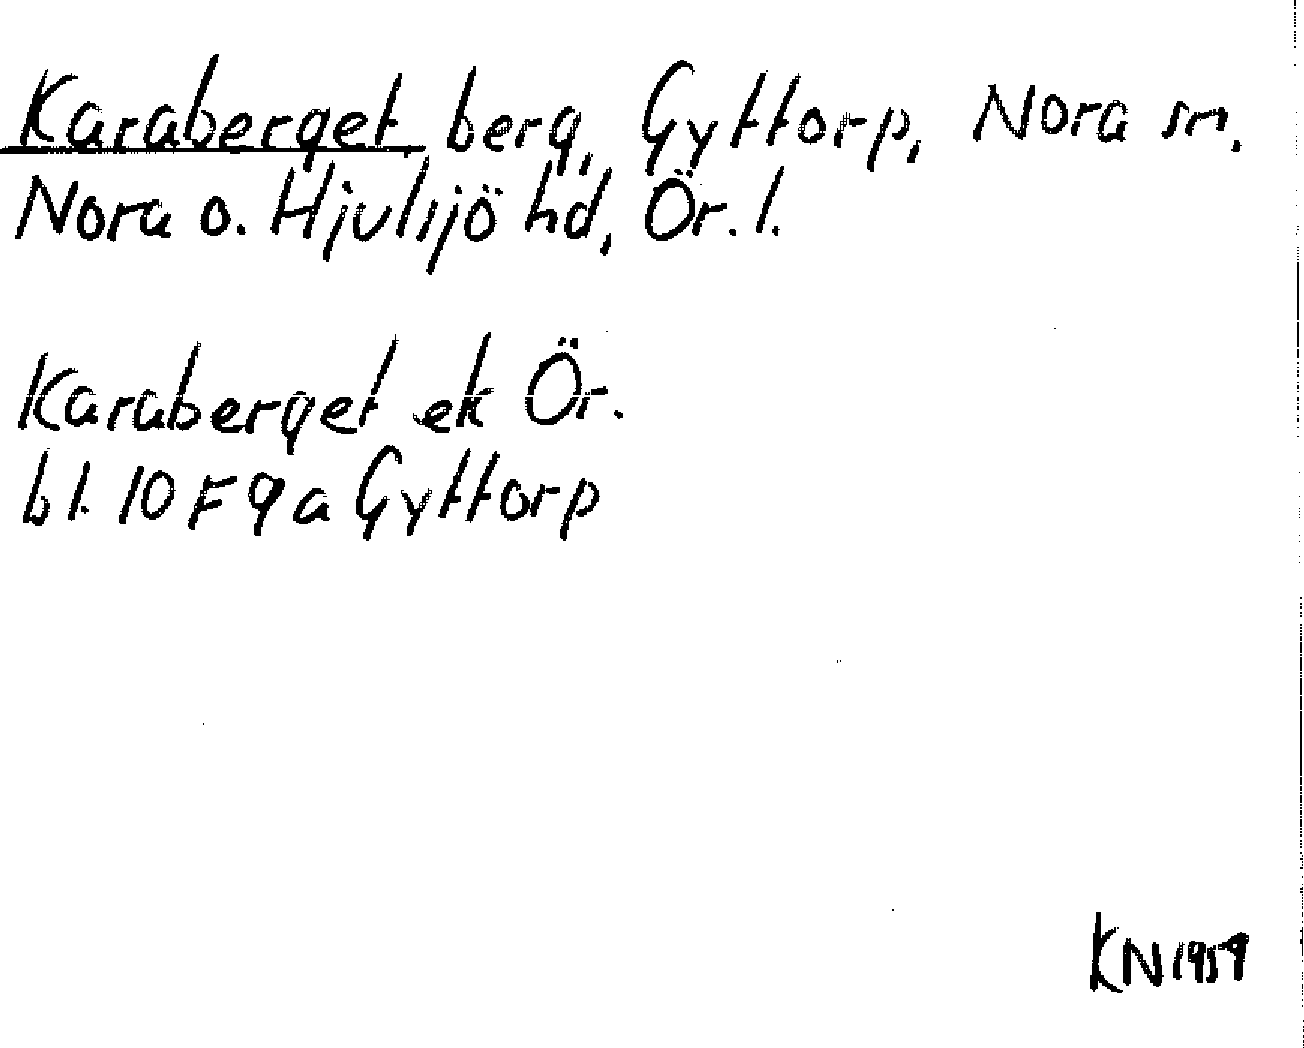 Karaberget berg, Gyttorp, Nora sn.
Nora o. Hjulsjö hd, Ör. l.
Karaberget ek Ör.
bl. 10 F 9 a Gyttorp
KN 1959